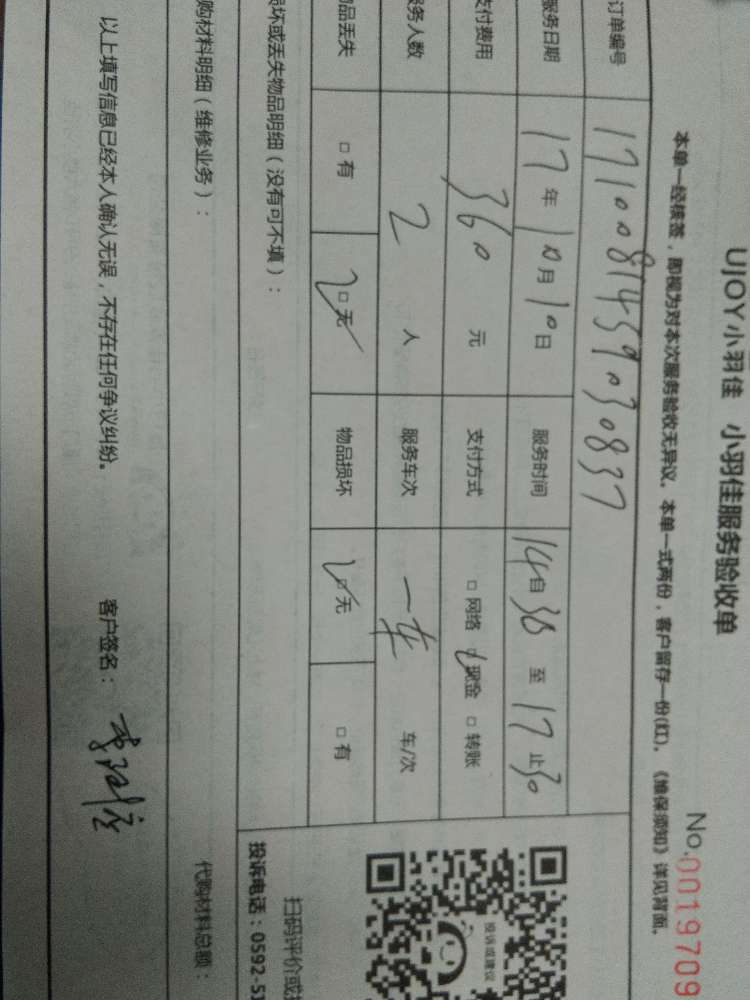 UJOY小羽佳 小羽佳服务验收单
No.0019709
本单一经核签，即视为对本次服务验收无异议。本单一式两份，客户留存一份(红)。《维保须知》详见背面。
订单编号 1710081459030837
服务日期 17年10月10日 服务时间 14自30至17止30
支付费用 360元 支付方式 □网络 □现金 □转账
服务人数 2人 服务车次 一车 车/次
物品丢失 □有 □无 物品损坏 □无 □有
损坏或丢失物品明细（没有可不填）：
投诉或建议
扫码评价或
投诉电话：0592-5
购材料明细（维修业务）：
代购材料总额：
以上填写信息已经本人确认无误，不存在任何争议纠纷。 客户签名：